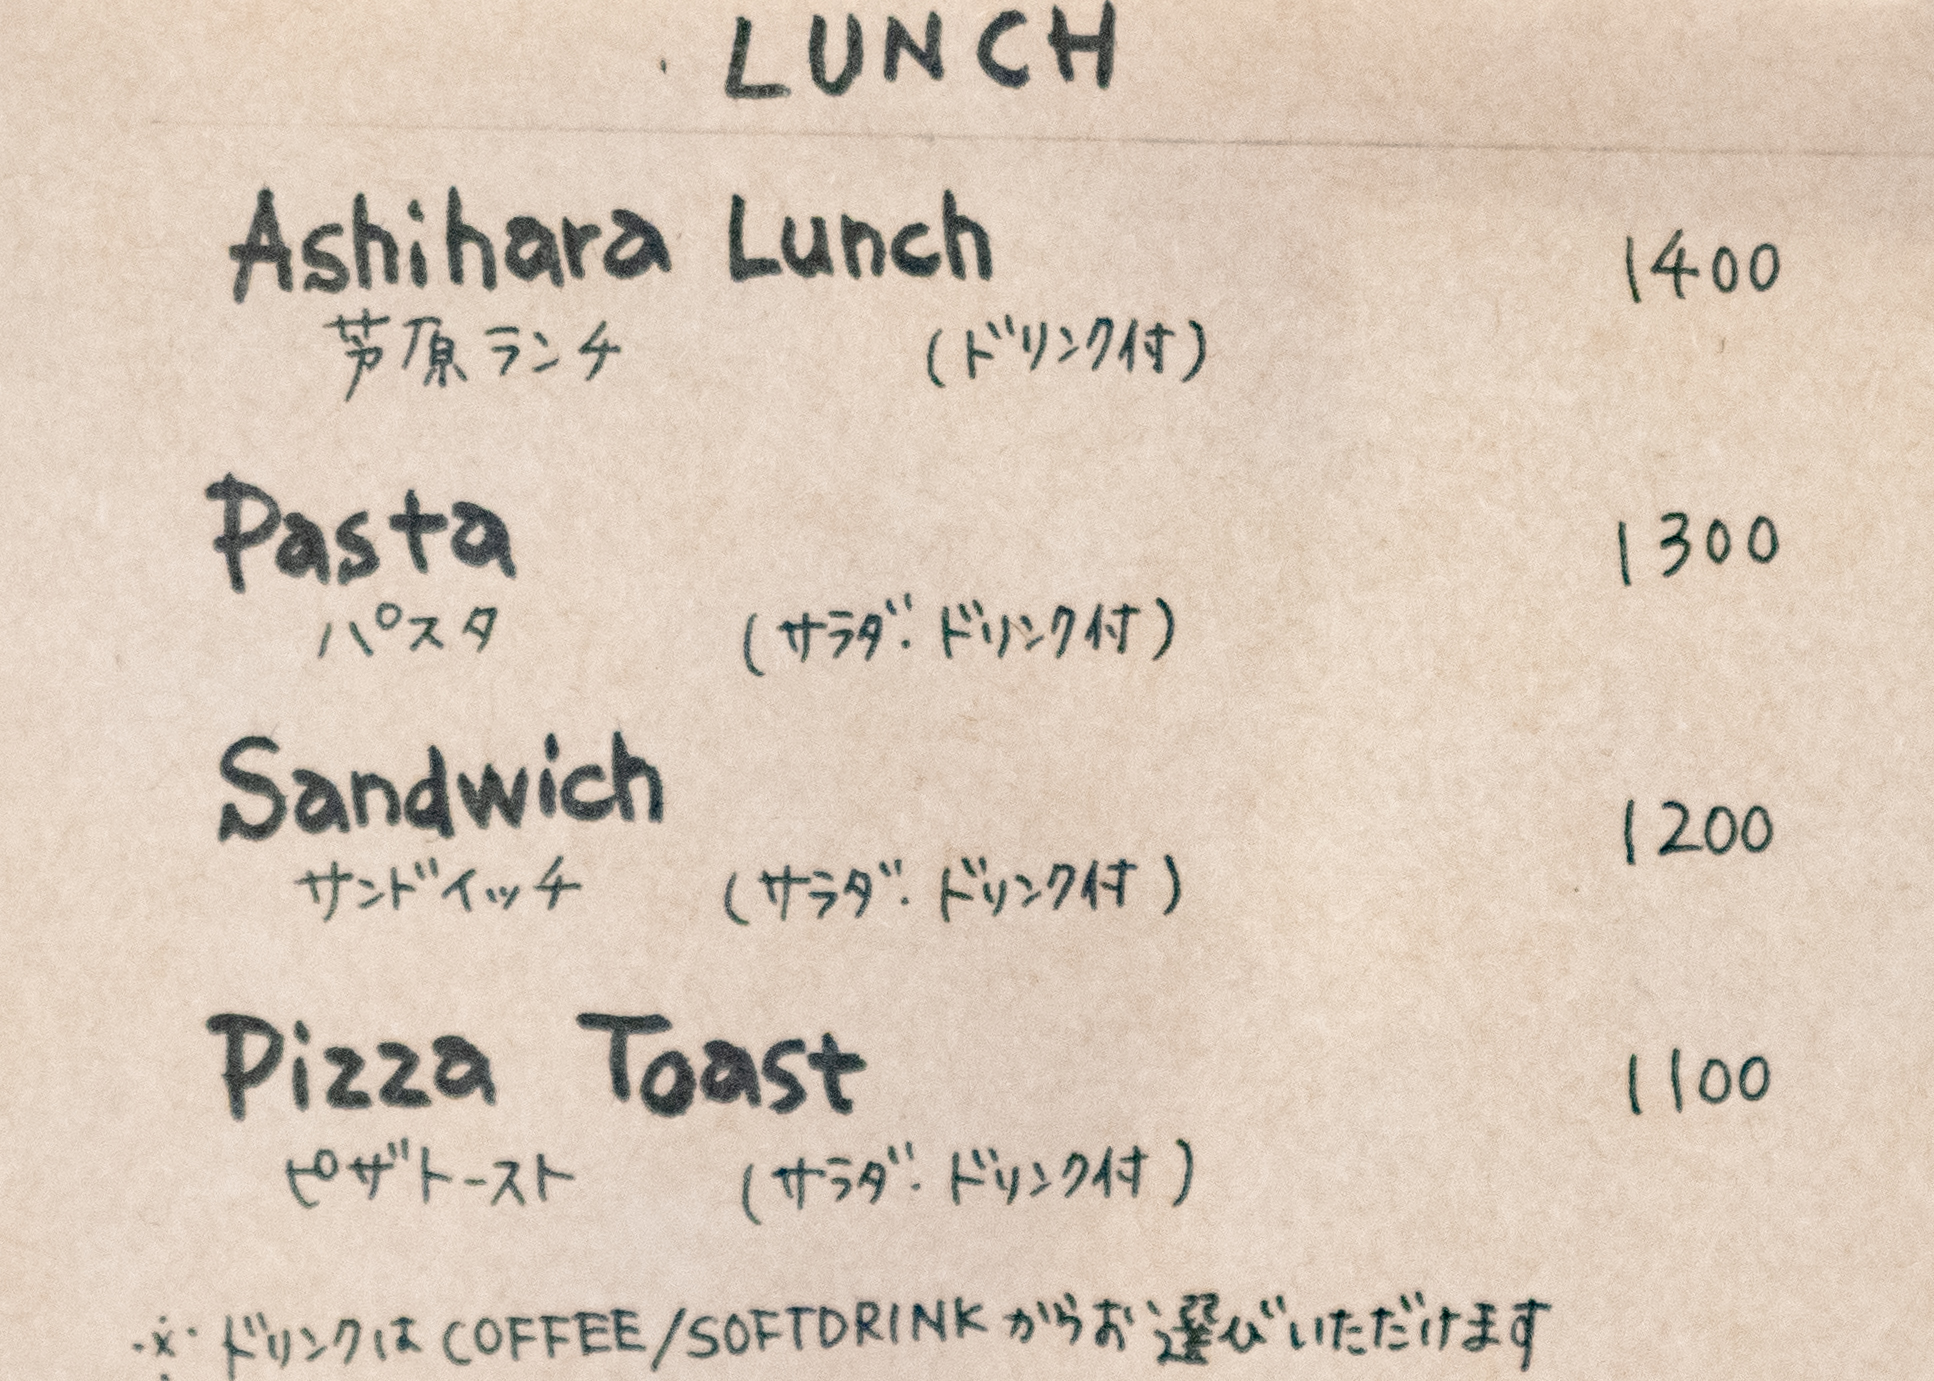 LUNCH
Ashihara Lunch 1400
芦原ランチ (ドリンク付)
Pasta 1300
パスタ (サラダ・ドリンク付)
Sandwich 1200
サンドイッチ (サラダ・ドリンク付)
Pizza Toast 1100
ピザトースト (サラダ・ドリンク付)
※ドリンクは COFFEE/SOFTDRINK からお選びいただけます